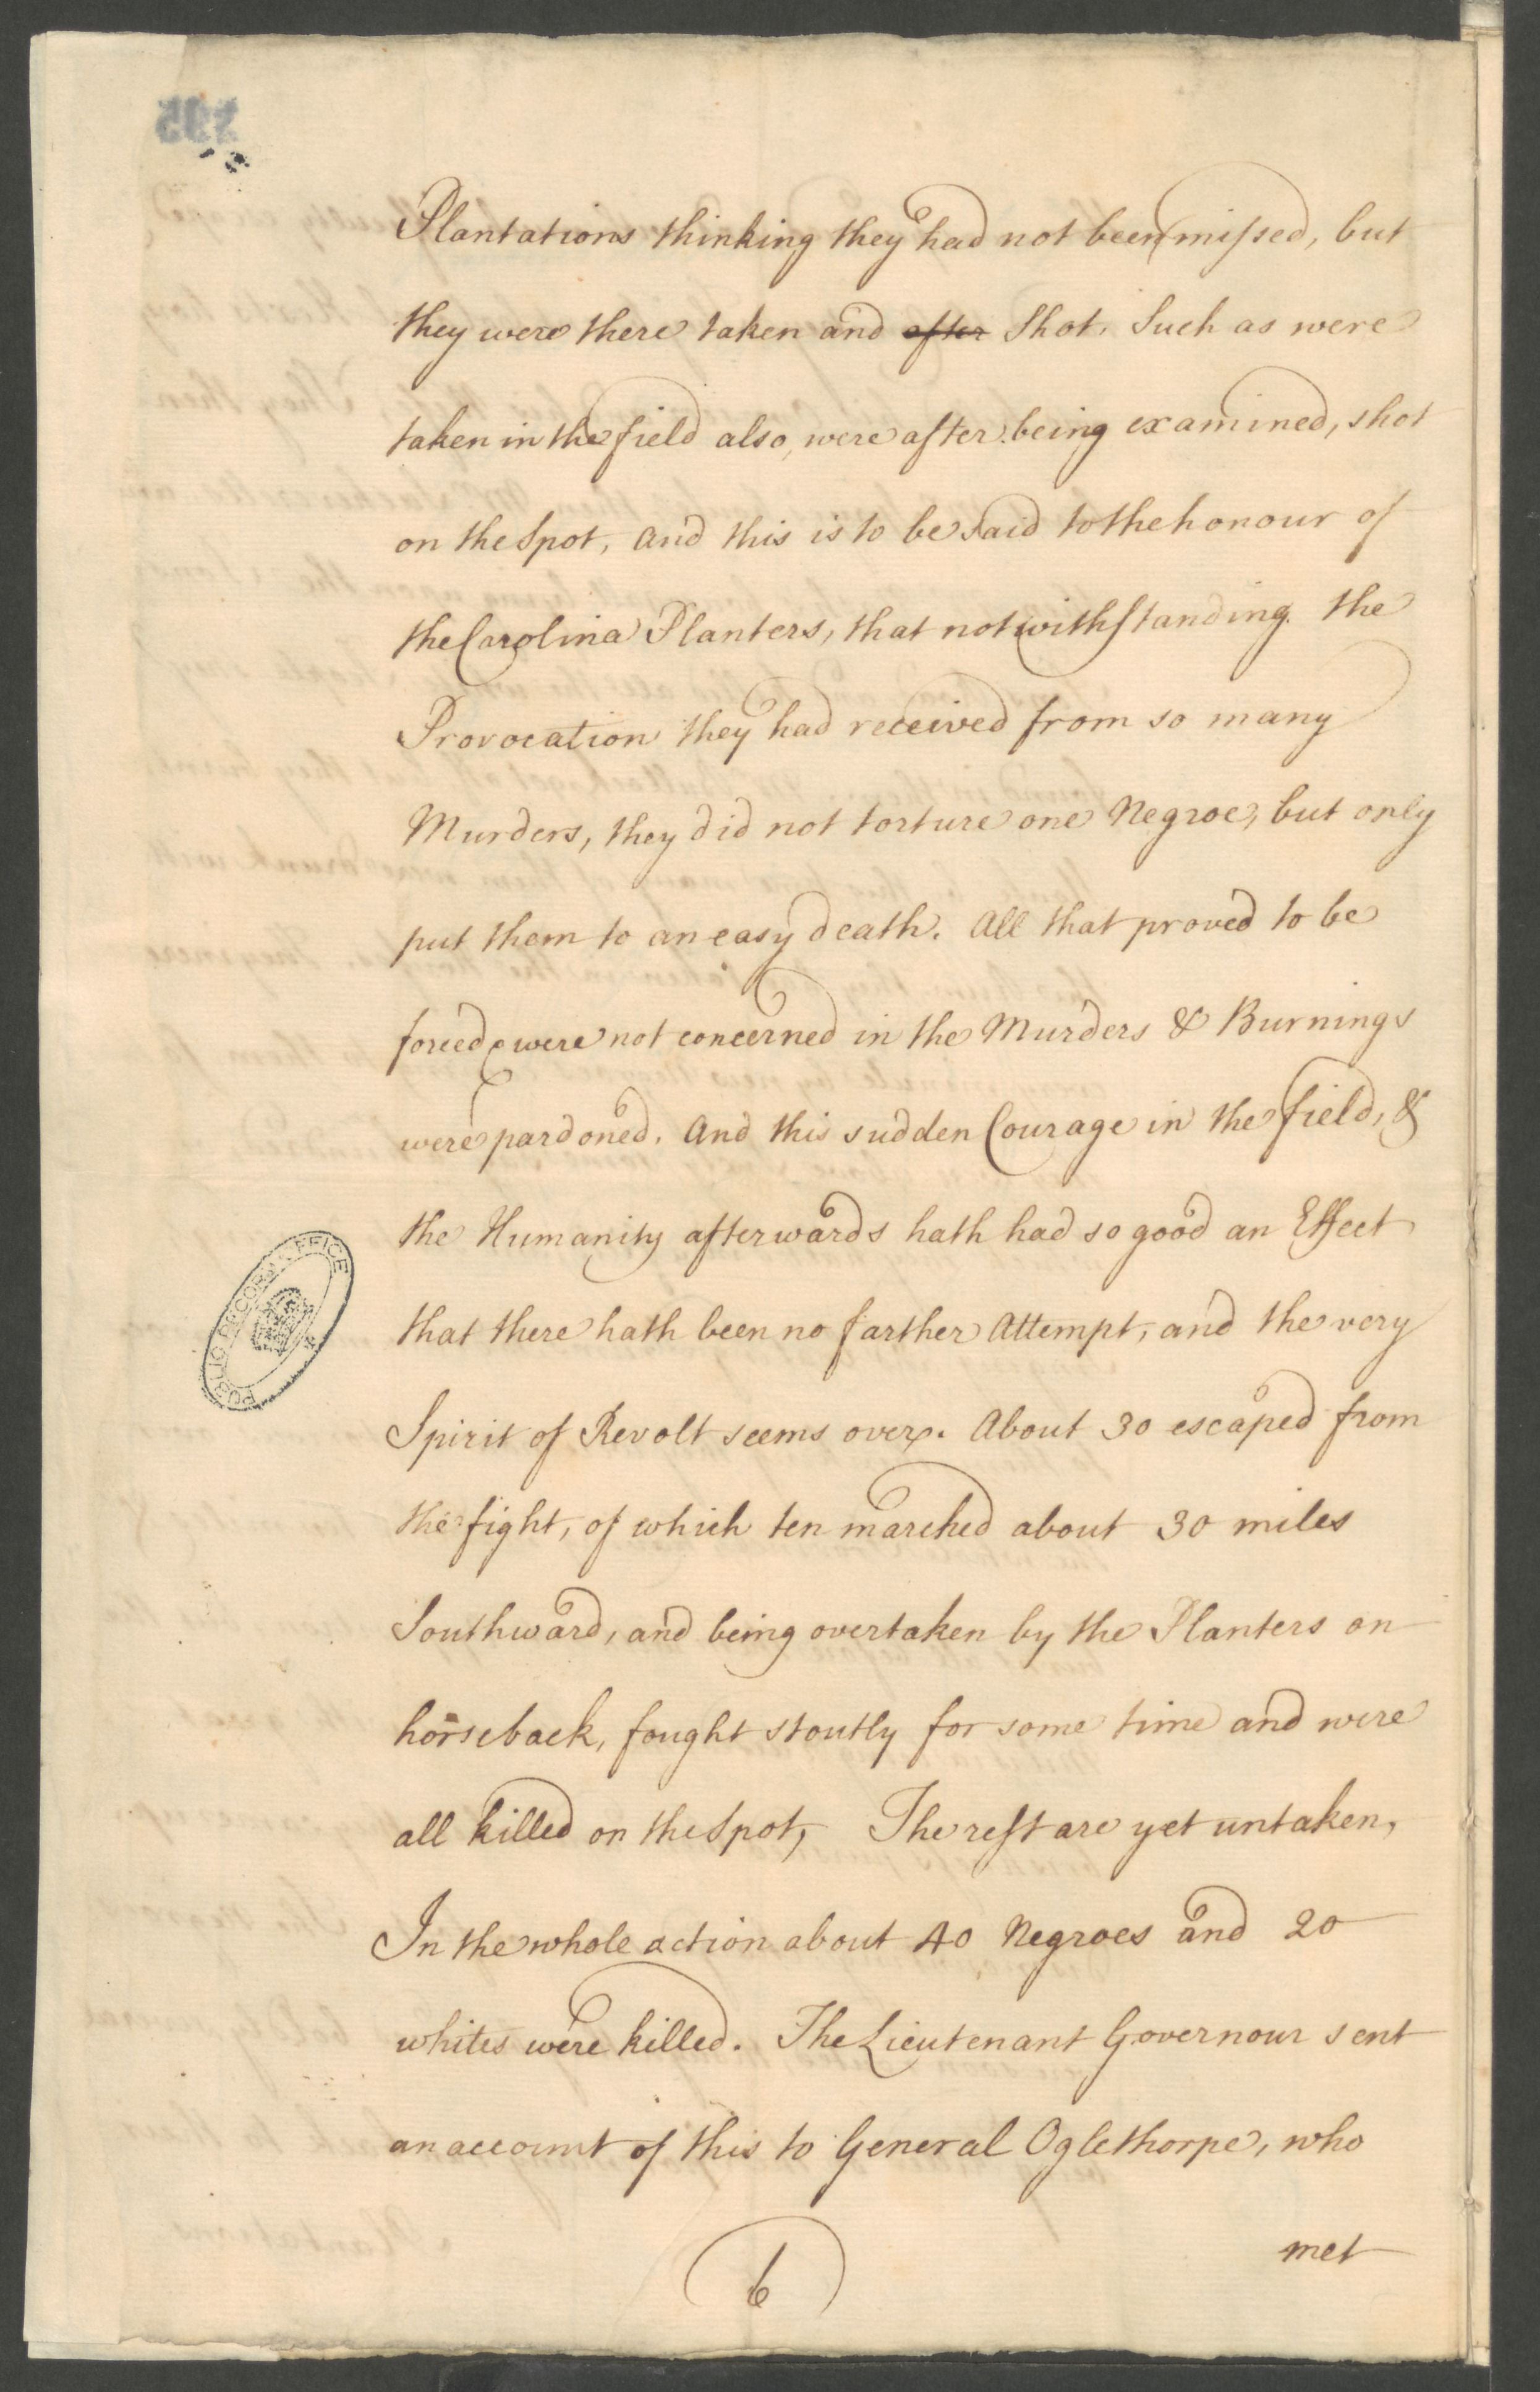 395
Plantations thinking they had not been missed, but
they were there taken and after Shot, Such as were
taken in the field also, were after being examined, shot
on the Spot, and this is to be said to the honour of
the Carolina Planters, that notwithstanding the
Provocation they had received from so many
Murders, they did not torture one Negroe, but only
put them to an easy death. All that proved to be
forced & were not concerned in the Murders & Burnings
were pardoned, And this sudden Courage in the field, &
the Humanity afterwards hath had so good an Effect
that there hath been no farther Attempt, and the very
Spirit of Revolt seems over. About 30 escaped from
the fight, of which ten marched about 30 miles
Southward, and being overtaken by the Planters on
horseback, fought stoutly for some time and were
all killed on the Spot, The rest are yet untaken,
In the whole action about 40 Negroes and 20
whites were killed. The Lieutenant Governour sent
an account of this to General Oglethorpe, who
met
6
PUBLIC RECORD OFFICE